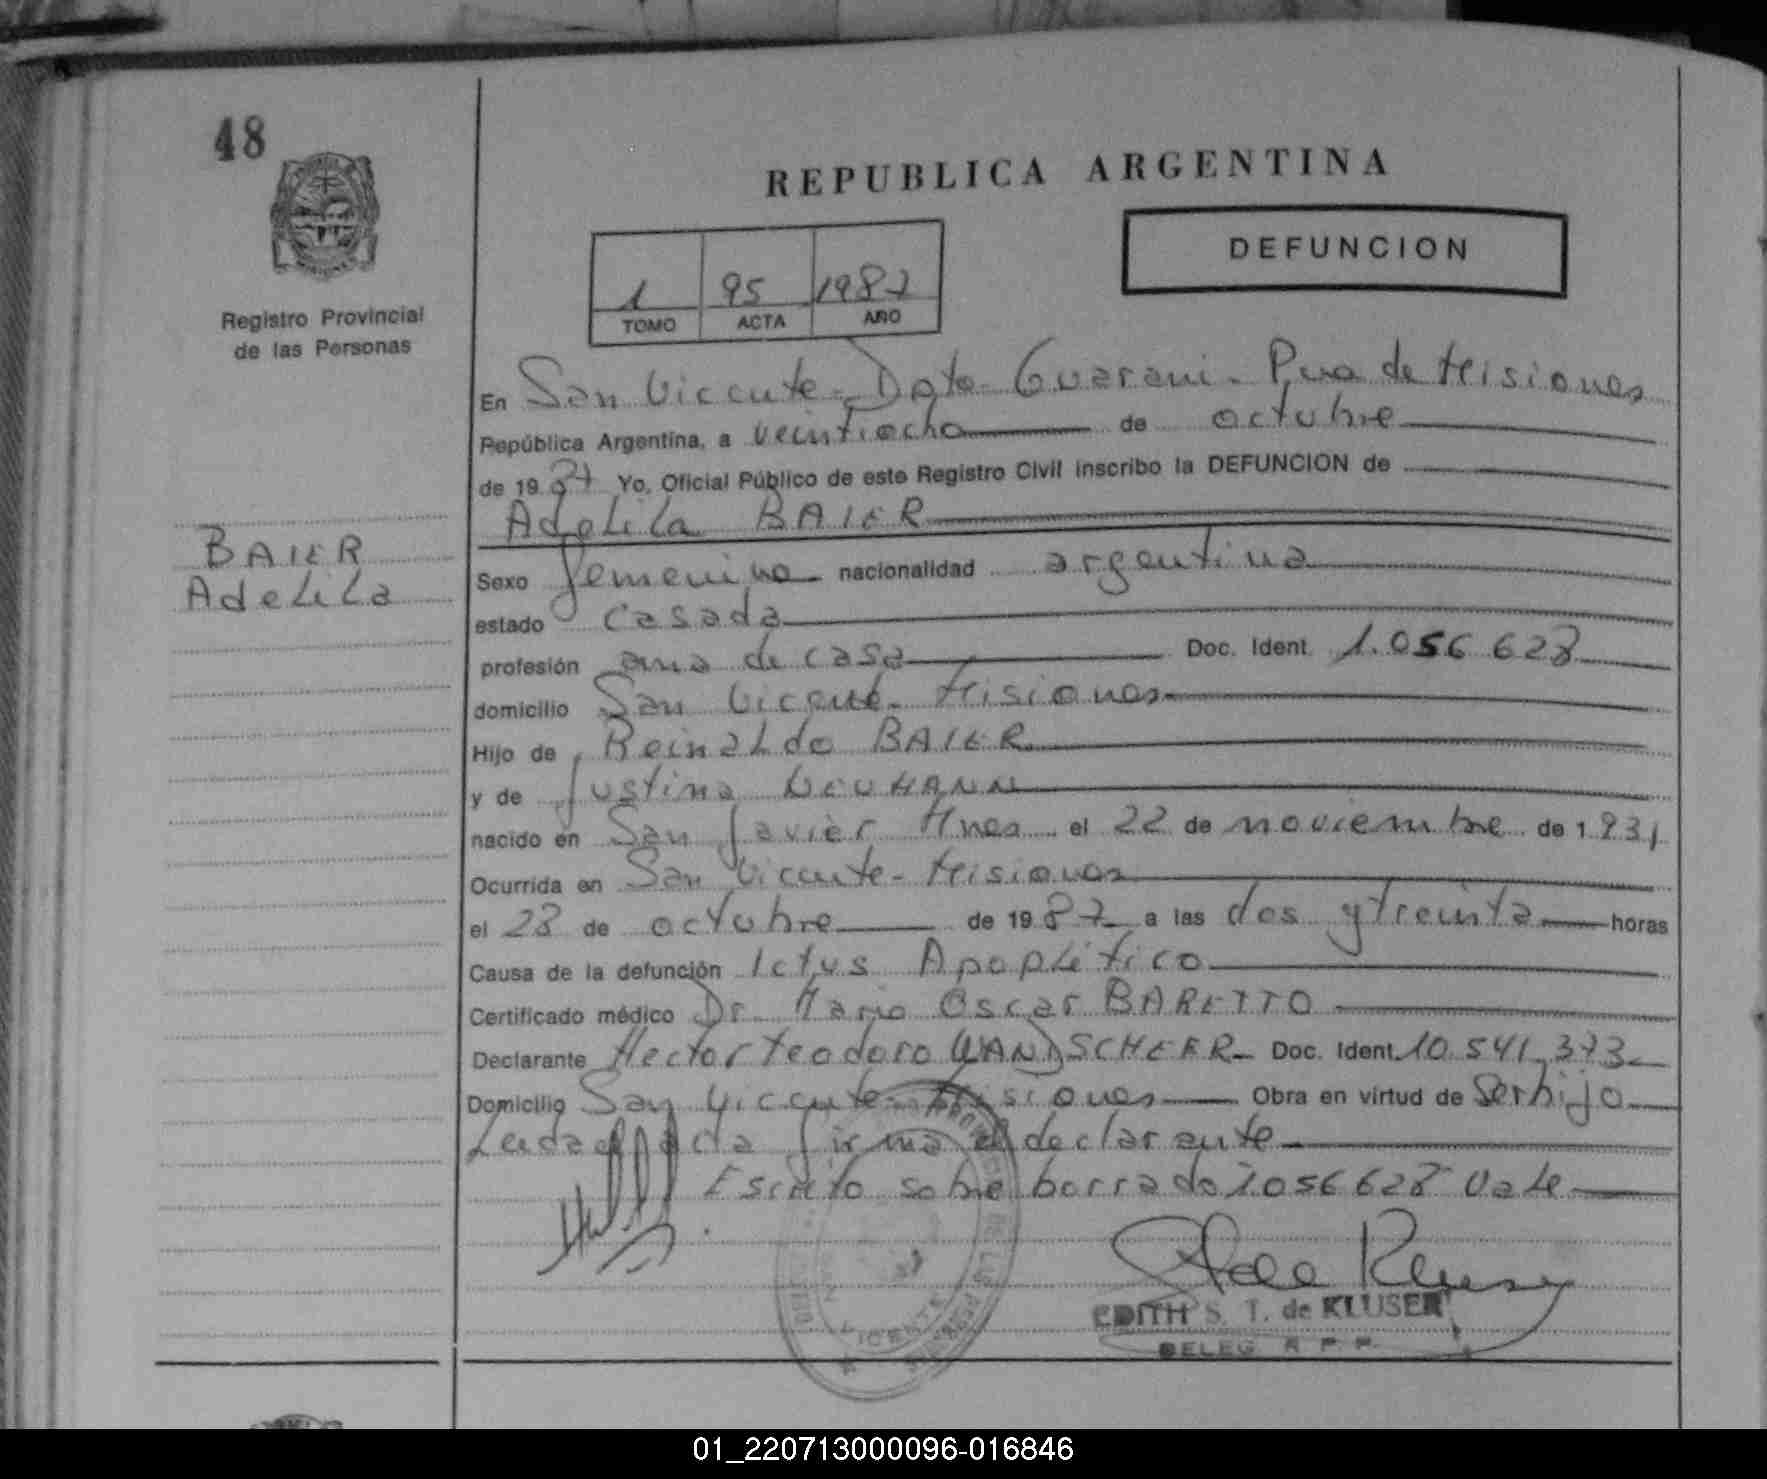 48
REPUBLICA ARGENTINA
DEFUNCION
1 95 1987
TOMO ACTA AÑO
Registro Provincial
de las Personas
BAIER
Adelila
En San Vicente - Dpto - Guarani - Pcia de Misiones
República Argentina, a veintiocho de octubre
de 19 87 Yo, Oficial Público de este Registro Civil inscribo la DEFUNCION de
Adelila BAIER
Sexo femenino nacionalidad argentina
estado casada
profesión ama de casa Doc. Ident. 1.056.628
domicilio San Vicente - Misiones
Hijo de Reinaldo BAIER
y de Justina NEUMANN
nacido en San Javier Mnes el 22 de noviembre de 1.931
Ocurrida en San Vicente - Misiones
el 28 de octubre de 19 87 a las dos y treinta horas
Causa de la defunción Ictus Apoplético
Certificado médico Dr. Mario Oscar BARETTO
Declarante Hector Teodoro WANDSCHEER - Doc. Ident. 10.541.373
Domicilio San Vicente - Misiones Obra en virtud de Ser hijo
Leida el acta firma el declarante
Escrito sobre borrado 1.056.628 Vale
EDITH S. T. de KLUSER
DELEG R P P.
SAN VICENTE
01_220713000096-016846